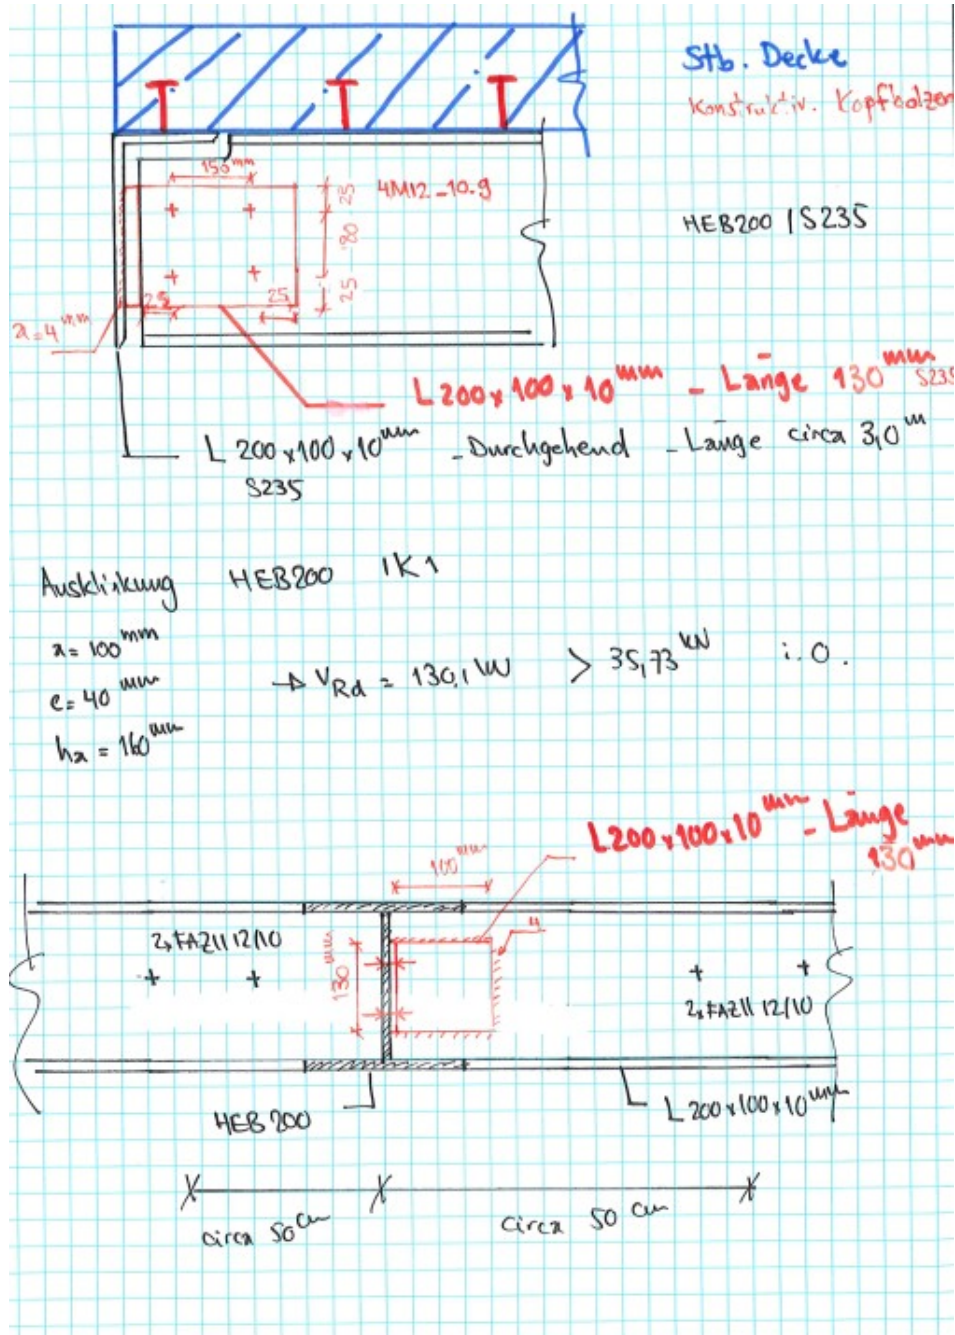 Stb. Decke
Konstruktiv. Kopfbolzen
150 mm
4M12_10.9
25
80
25
HEB200 | S235
25
25
a=4 mm
L200x100x10 mm - Länge 130 mm S235
L 200x100x10 mm - Durchgehend - Länge circa 3,0 m
S235
Ausklinkung HEB200 IK1
a= 100 mm
e= 40 mm
ha = 160 mm
→ VRd = 130,1 kN > 35,73 kN i.O.
L200x100x10 mm - Länge
130 mm
100 mm
4
2xFAZII 12/10
130 mm
2xFAZII 12/10
HEB 200
L 200x100x10 mm
circa 50 cm
circa 50 cm